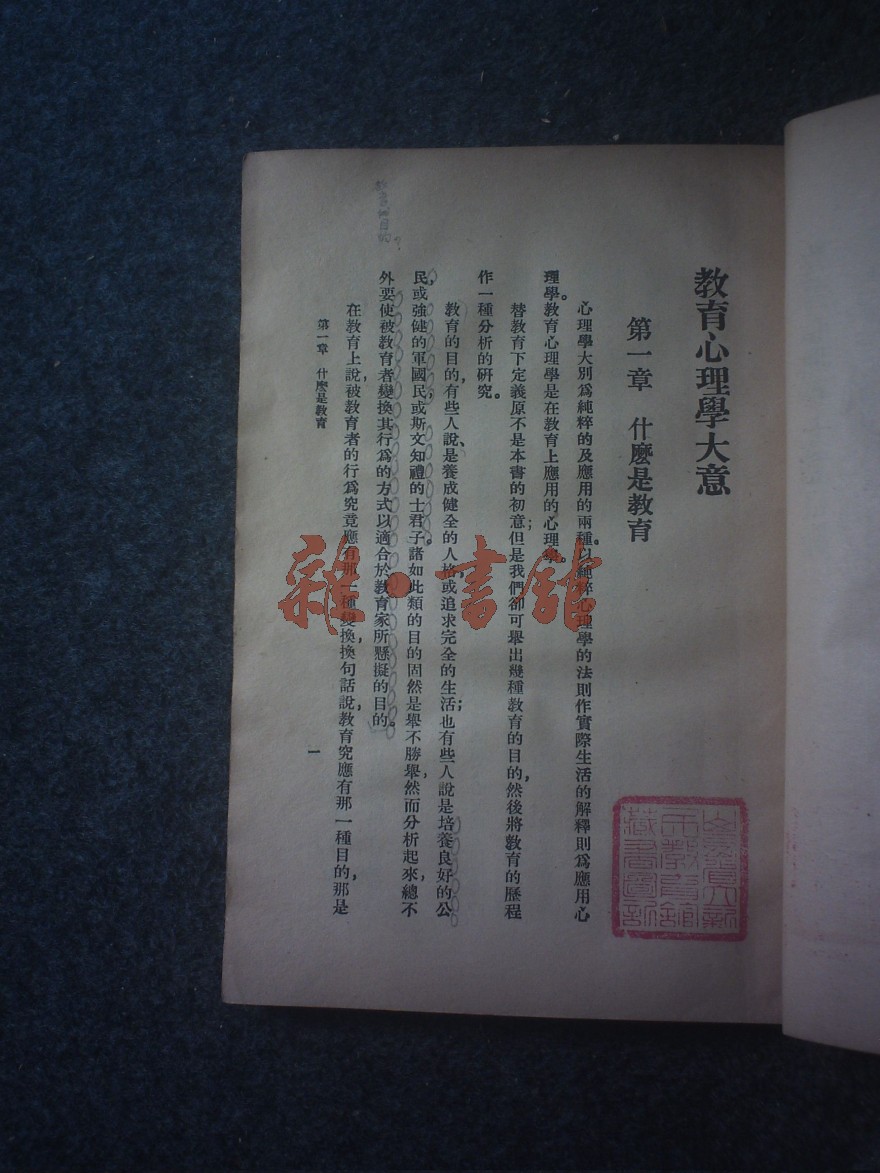 教育心理學大意
第一章　什麽是教育
心理學大別爲純粹的及應用的兩種。以純粹心理學的法則作實際生活的解釋則爲應用心
理學。教育心理學是在教育上應用的心理學。
替教育下定義原不是本書的初意；但是我們卻可舉出幾種教育的目的，然後將教育的歷程
作一種分析的研究。
教育的目的，有些人說，是養成健全的人格，或追求完全的生活；也有些人說是培養良好的公
民，或強健的軍國民，或斯文知禮的士君子。諸如此類的目的固然是舉不勝舉，然而分析起來，總不
外要使被教育者變換其行爲的方式以適合於教育家所懸擬的目的。
在教育上說，被教育者的行爲究竟應有那一種變換，換句話說，教育究應有那一種目的，那是
第一章　什麽是教育
一
雜·書館
民教育館
藏書圖記